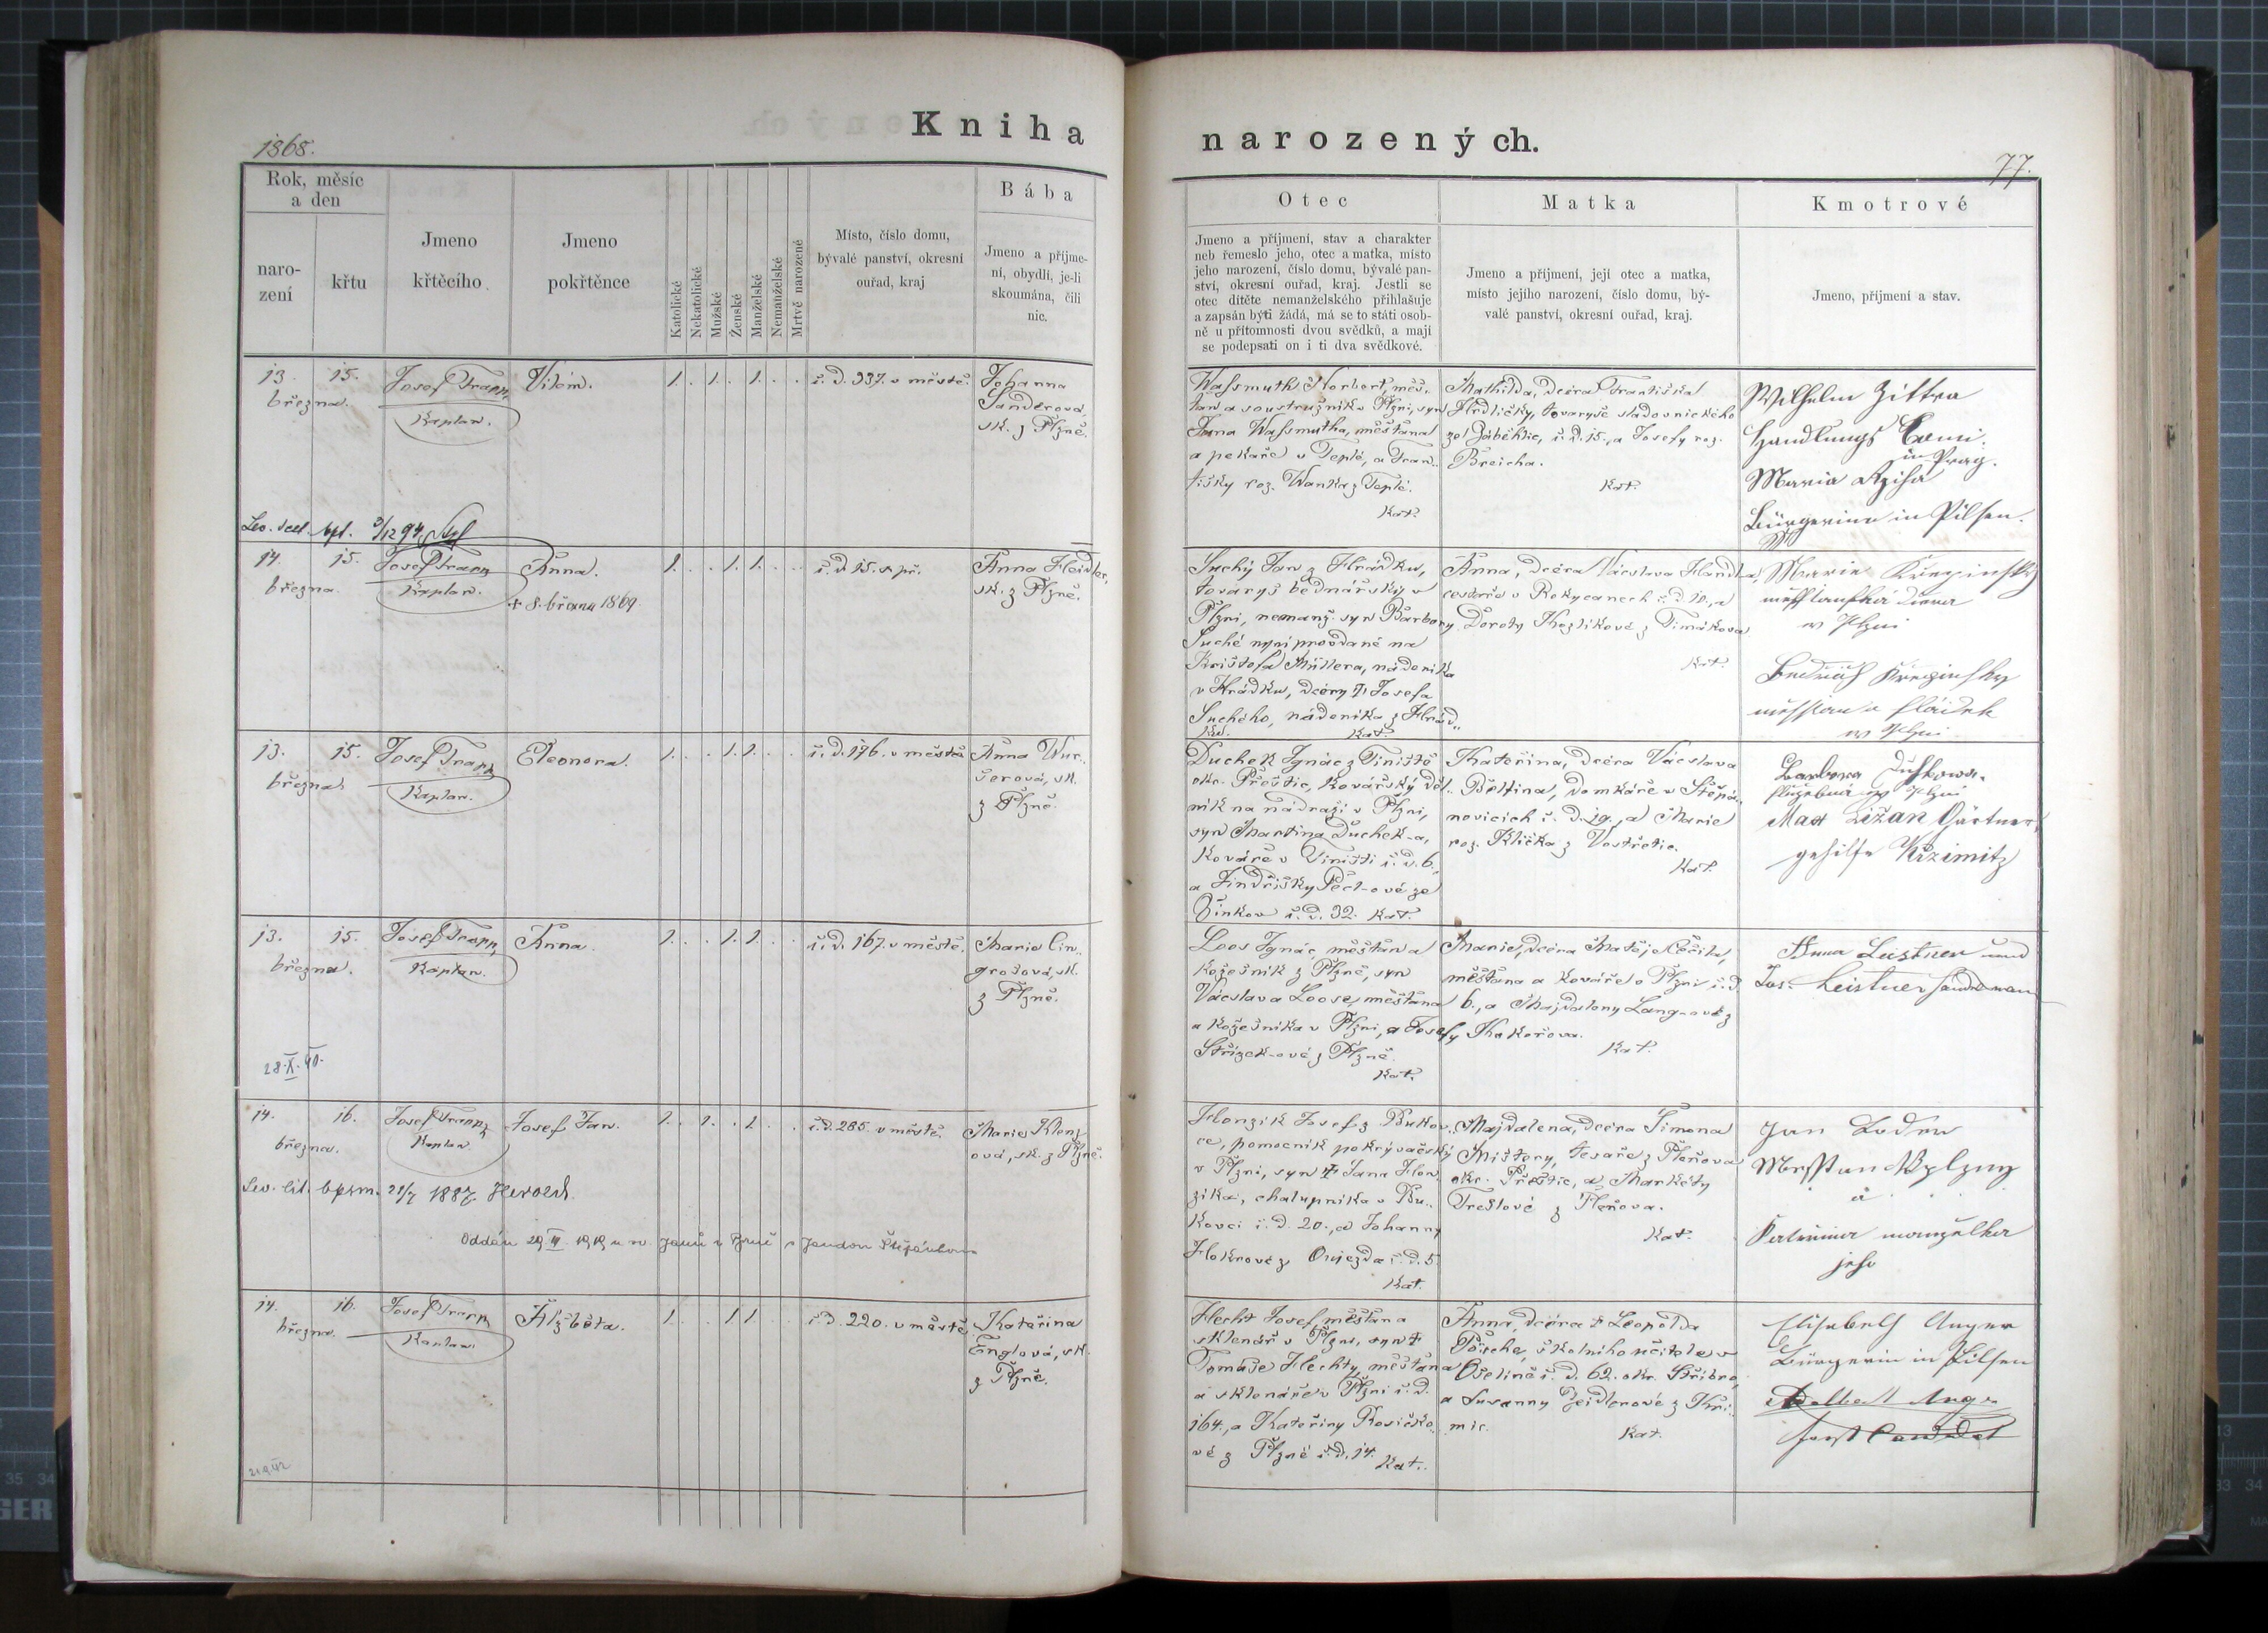 Kniha
narozených.
1868.
77.
Rok, měsíc
a den
naro-
zení
křtu
Jmeno
křtěcího
Jmeno
pokřtěnce
Katolické
Nekatolické
Mužské
Ženské
Manželské
Nemanželské
Mrtvě narozené
Místo, číslo domu,
bývalé panství, okresní
ouřad, kraj
Bába
Jmeno a příjme-
ní, obydlí, je-li
skoumána, čili
nic.
Otec
Jmeno a příjmení, stav a charakter
neb řemeslo jeho, otec a matka, místo
jeho narození, číslo domu, bývalé pan-
ství, okresní ouřad, kraj. Jestli se
otec dítěte nemanželského přihlašuje
a zapsán býti žádá, má se to státi osob-
ně u přítomnosti dvou svědků, a mají
se podepsati on i ti dva svědkové.
Matka
Jmeno a příjmení, její otec a matka,
místo jejího narození, číslo domu, bý-
valé panství, okresní ouřad, kraj.
Kmotrové
Jmeno, příjmení a stav.
13. 15.
března.
Josef Trapp,
Kaplan.
Vilém.
1. . 1. . 1. . .
č. d. 337. v městě.
Johanna
Sanderová,
sk. z Plzně.
Waſsmuth Norbert, měš..
ťan a soustružník v Plzni, syn
Jana Waſsmutha, měšťana
a pekaře v Teplé, a Fran..
tišky roz. Wanka z Teplé.
Kat.
Mathilda, dcera Františka
Hrdličky, tovaryše sladovnického
ze Záběhlic, č. d. 15., a Josefy roz.
Breicha.
Kat.
Wilhelm Zittra
Handlungs Comi.
in Prag.
Maria
Bürgerinn in Pilsen.
14. 15.
března.
Josef Trapp
Kaplan.
Anna.
+ 8. března 1869
1. . . 1. 1. . .
č. d. 15. s př.
Anna Heidler,
sk. z Plzně.
Suchý Jan z Hrádku,
tovaryš bednářský v
Plzni, nemanž. syn Barbory
Suché nyní provdané na
Krištofa Müllera, nádeníka
v Hrádku, dcery † Josefa
Suchého, nádeníka z Hrád..
ku. Kat.
Anna, dcera Václava Handla,
cestáře v Rokycanech č. d. 10., a
Doroty Kozlíkové z Timákova
Kat.
Marie Křepinský
v Plzni
13. 15.
března.
Josef Trapp
Kaplan.
Eleonora.
1. . . 1. 1. . .
č. d. 196. v městě
Anna Wur..
šerová, sk.
z Plzně.
Duchek Ignác z Tiniště
okr. Přeštic, kovářský děl..
ník na nádraží v Plzni,
syn Martina Duchek-a,
kováře v Tiništi č. d. 6,
a Jindřišky Pecl-ové ze
Žinkov č. d. 32. Kat.
Kateřina, dcera Václava
Beltina, domkáře v Štěpá..
novicích č. d. 19., a Marie
roz. Klička z Vostřetic.
Kat.
Barbora
v Plzni
Max Ližan Gärtner
gehilfe Krzimitz
13. 15.
března.
Josef Trapp,
Kaplan.
Anna.
1. . . 1. 1. . .
č. d. 167. v městě.
Marie Cin..
grošová, sk.
z Plzně.
28. X. 40.
Loos Ignác měšťan a
kožešník z Plzně, syn
Václava Loose, měšťana
a kožešníka v Plzni, a Josefy
Střízek-ové z Plzně.
Kat.
Marie, dcera Matěje Čečila,
měšťana a kováře v Plzni č. d.
6., a Majdaleny Lang-ové z
Chokořova.
Kat.
Anna Leistner und
Jos. Leistner Handelsman
14. 16.
března.
Josef Trapp,
Kaplan.
Josef Jan.
1. . 1. . 1. . .
č. d. 265. v městě.
Marie Klenz-
ová, sk. z Plzně.
1887. Heroldt
Oddán
Honzík Josef z Bukov..
ce, pomocník pokrývačský
v Plzni, syn † Jana Hon..
zíka, chalupníka v Bu..
kovci č. d. 20., a Johanny
Hoknové z Oujezda č. d. 5.
Kat.
Majdalena, dcera Šimona
Mištery, tesaře z Pleňova
okr. Přeštic, a Markéty
Treštové z Pleňova.
Kat.
Jan
a
Kateřina manželka
jeho
14. 16.
března.
Josef Trapp
Kaplan.
Alžběta.
1. . . 1 1. . .
č. d. 220. v městě.
Kateřina
Englová, sk.
z Plzně.
Hecht Josef, měšťan a
sklenář v Plzni, syn †
Tomáše Hechty, měšťana
a sklenáře v Plzni č. d.
164., a Kateřiny Rosičko..
vé z Plzně č. d. 14. Kat.
Anna, dcera † Leopolda
Pösche, školního učitele v
Ošelíně č. d. 62. okr. Stříbro,
a Susanny Zeidlerové z Kři..
mic. Kat.
Elisabeth Unger
Bürgerin in Pilsen